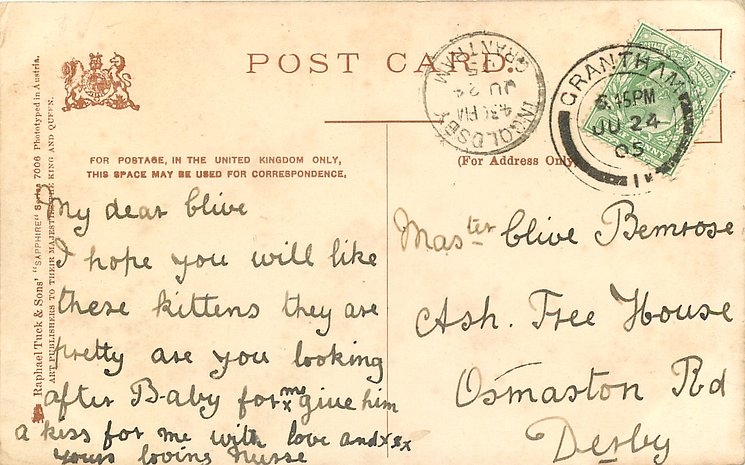 POST CARD.
INGOLDSBY
GRANTHAM
4.30 PM
JU 24
05
GRANTHAM
6.15PM
JU 24
05
FOR POSTAGE, IN THE UNITED KINGDOM ONLY,
THIS SPACE MAY BE USED FOR CORRESPONDENCE.
(For Address Only
Raphael Tuck & Sons' "SAPPHIRE" Series 7006 Phototyped in Austria.
ART PUBLISHERS TO THEIR MAJESTIES THE KING AND QUEEN.
My dear Clive
I hope you will like
these kittens they are
pretty are you looking
after Baby for me give him
a kiss for me with love and xxx
yours loving Nurse
Master Clive Bemrose
Ash. Tree House
Osmaston Rd
Derby